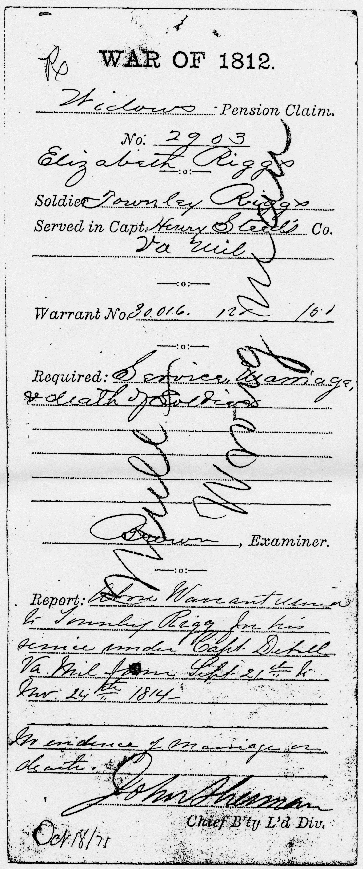 Rx
WAR OF 1812.
Widows Pension Claim.
No. 2903
Elizabeth Riggs
Soldier Townley Riggs
Served in Capt. Henry Steells Co.
Va Mil
Warrant No 30,016. 12
Required: Service, Marriage,
& death of Soldier
Wrong Number
Brown, Examiner.
Report: Above Warrant
to Townley Rigg for his
service under Capt
Va Mil from Sept 21st to
Nov 24th 1814
No evidence of marriage or
death.
John Shuman
Chief B'ty L'd Div.
Oct 18/71